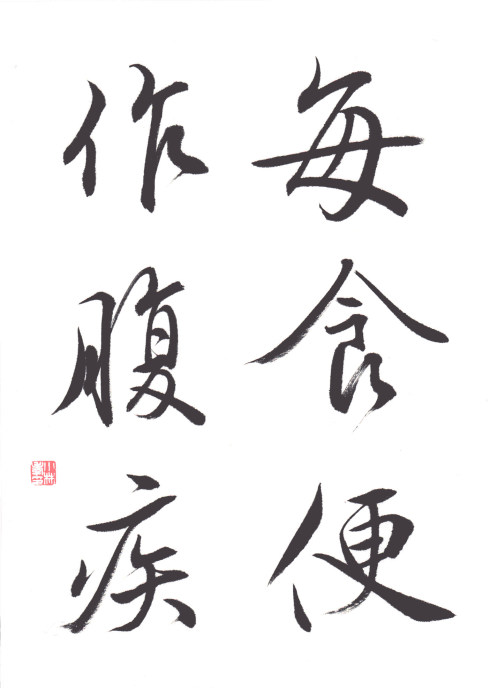 毎食便
作腹疾